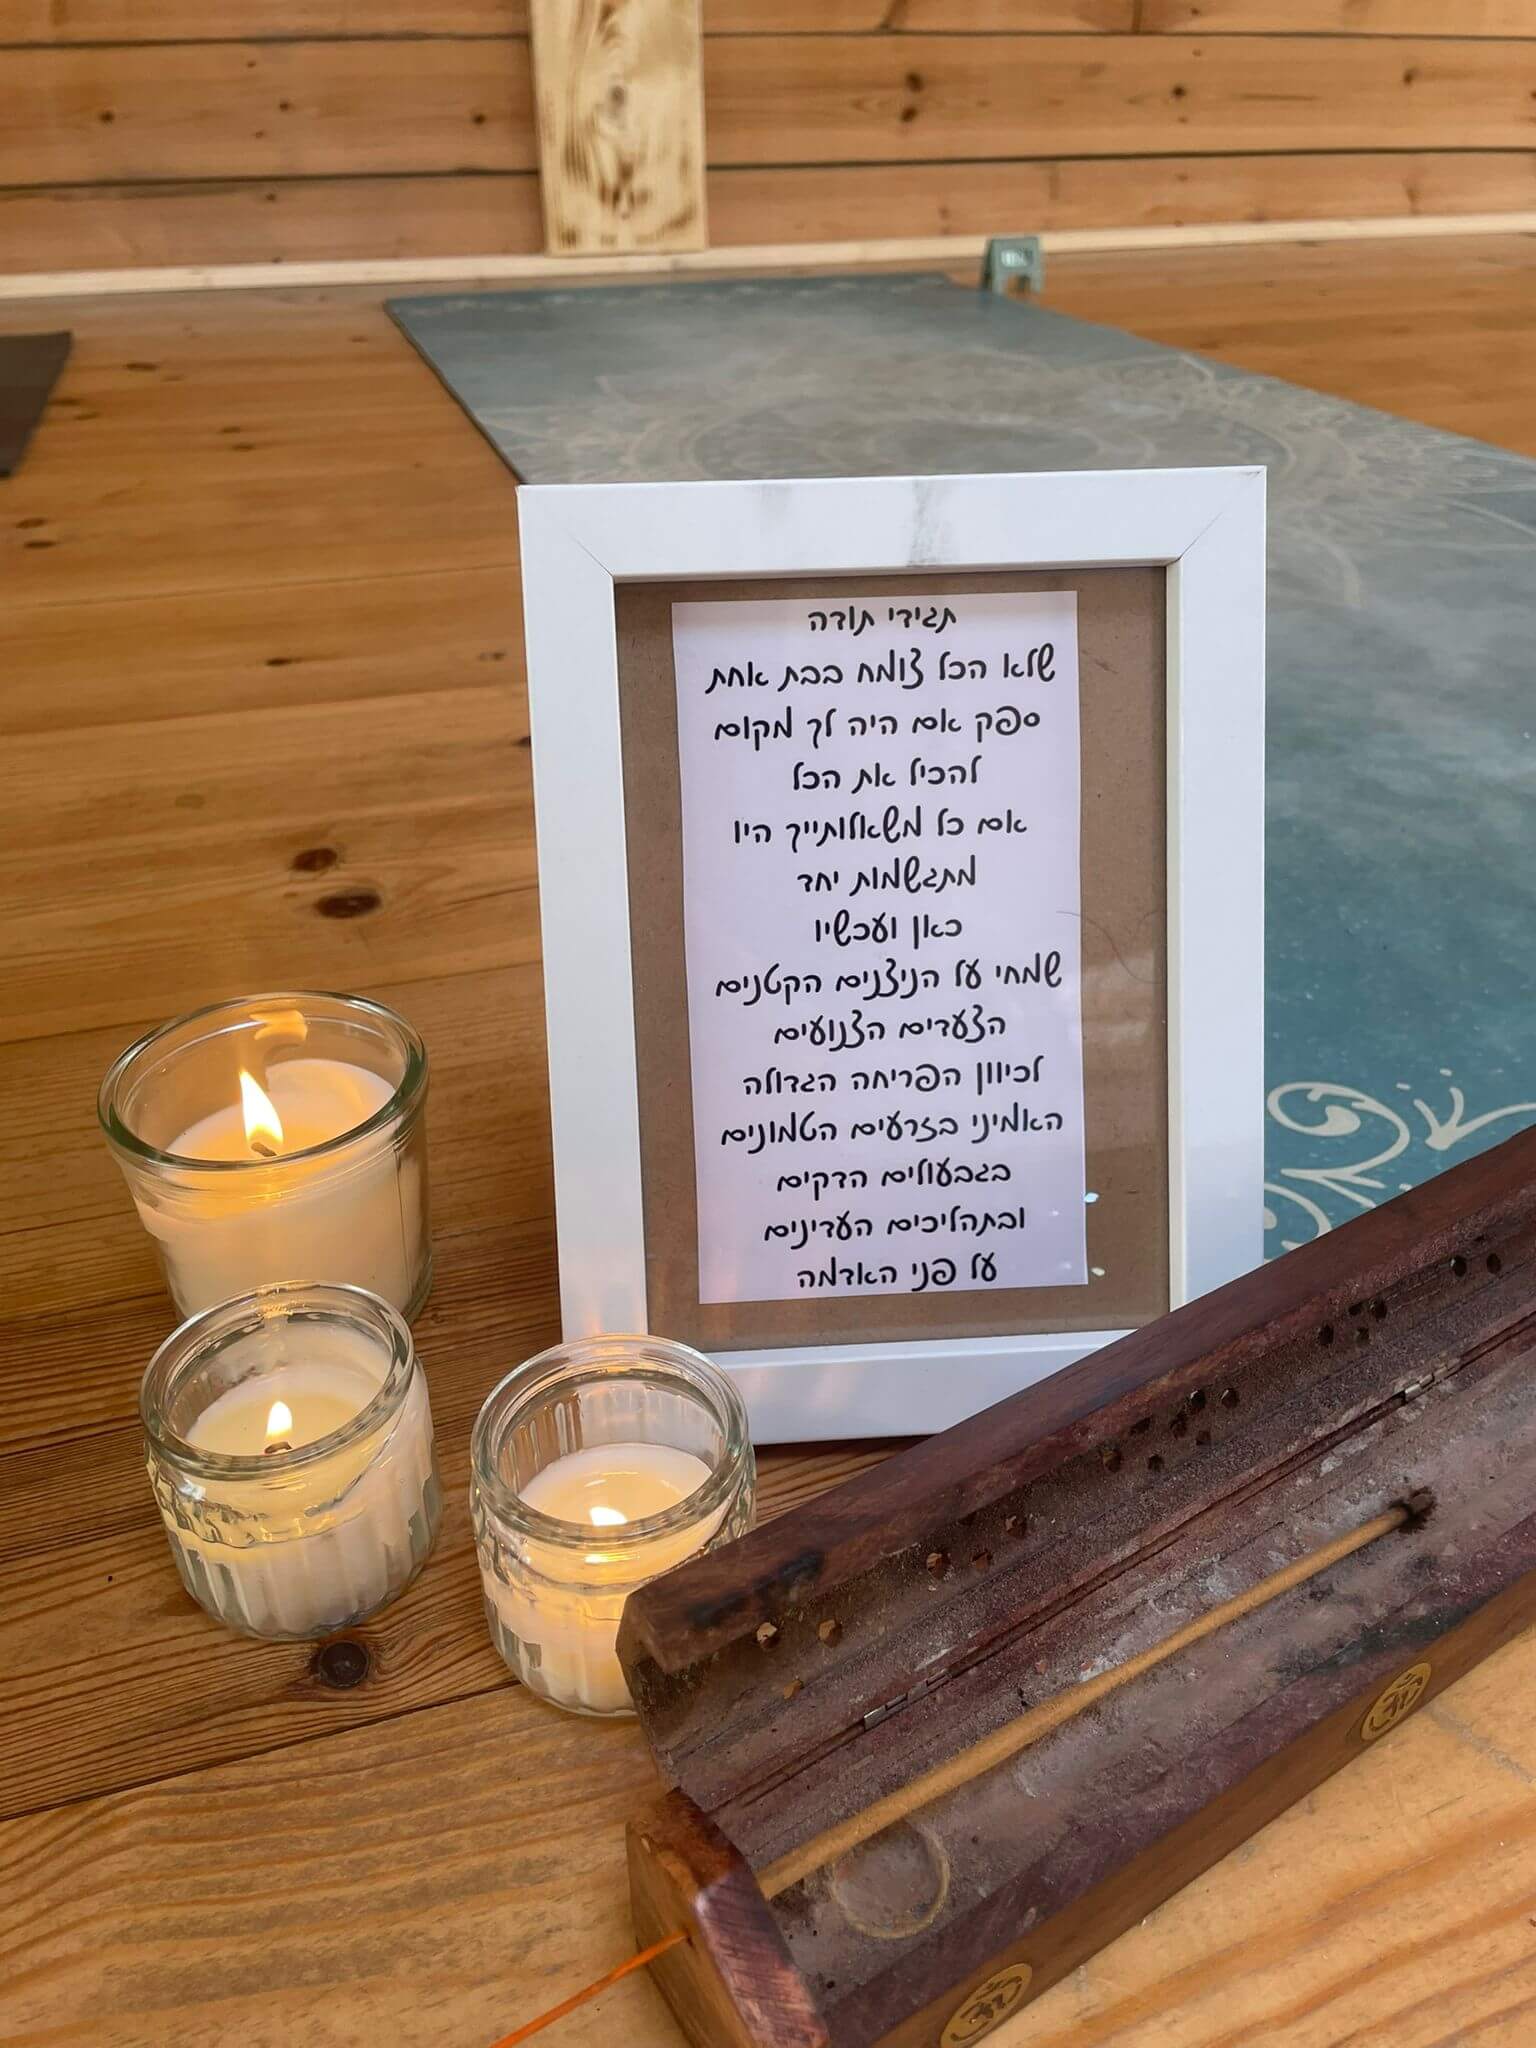 תגידי תודה
שלא הכל צומח בבת אחת
ספק אם היה לך מקום
להכיל את הכל
אם כל משאלותייך היו
מתגשמות יחד
כאן ועכשיו
שמחי על הניצנים הקטנים
הצעדים הצנועים
לכיוון הפריחה הגדולה
האמיני בזרעים הטמונים
בגבעולים הדקים
ובתהליכים העדינים
על פני האדמה
ॐ
ॐ